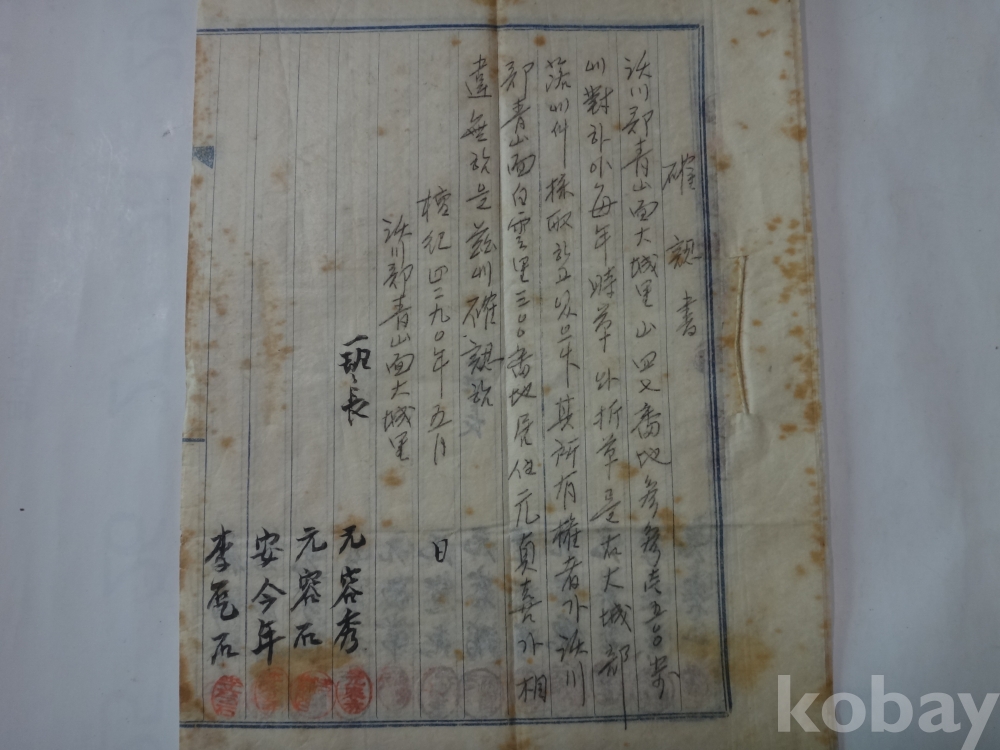 確認書
沃川郡青山面大城里山四七番地參
對하야每年時草外折草是右大城部
落에서採取하고 其所有權者가沃川
郡青山面白雲里三〇〇番地居住元貞喜가相
違無하是玆에確認함
檀紀四二九〇年五月 日
沃川郡青山面大城里
一班長 元容秀
元容石
安今年
李 石
kobay